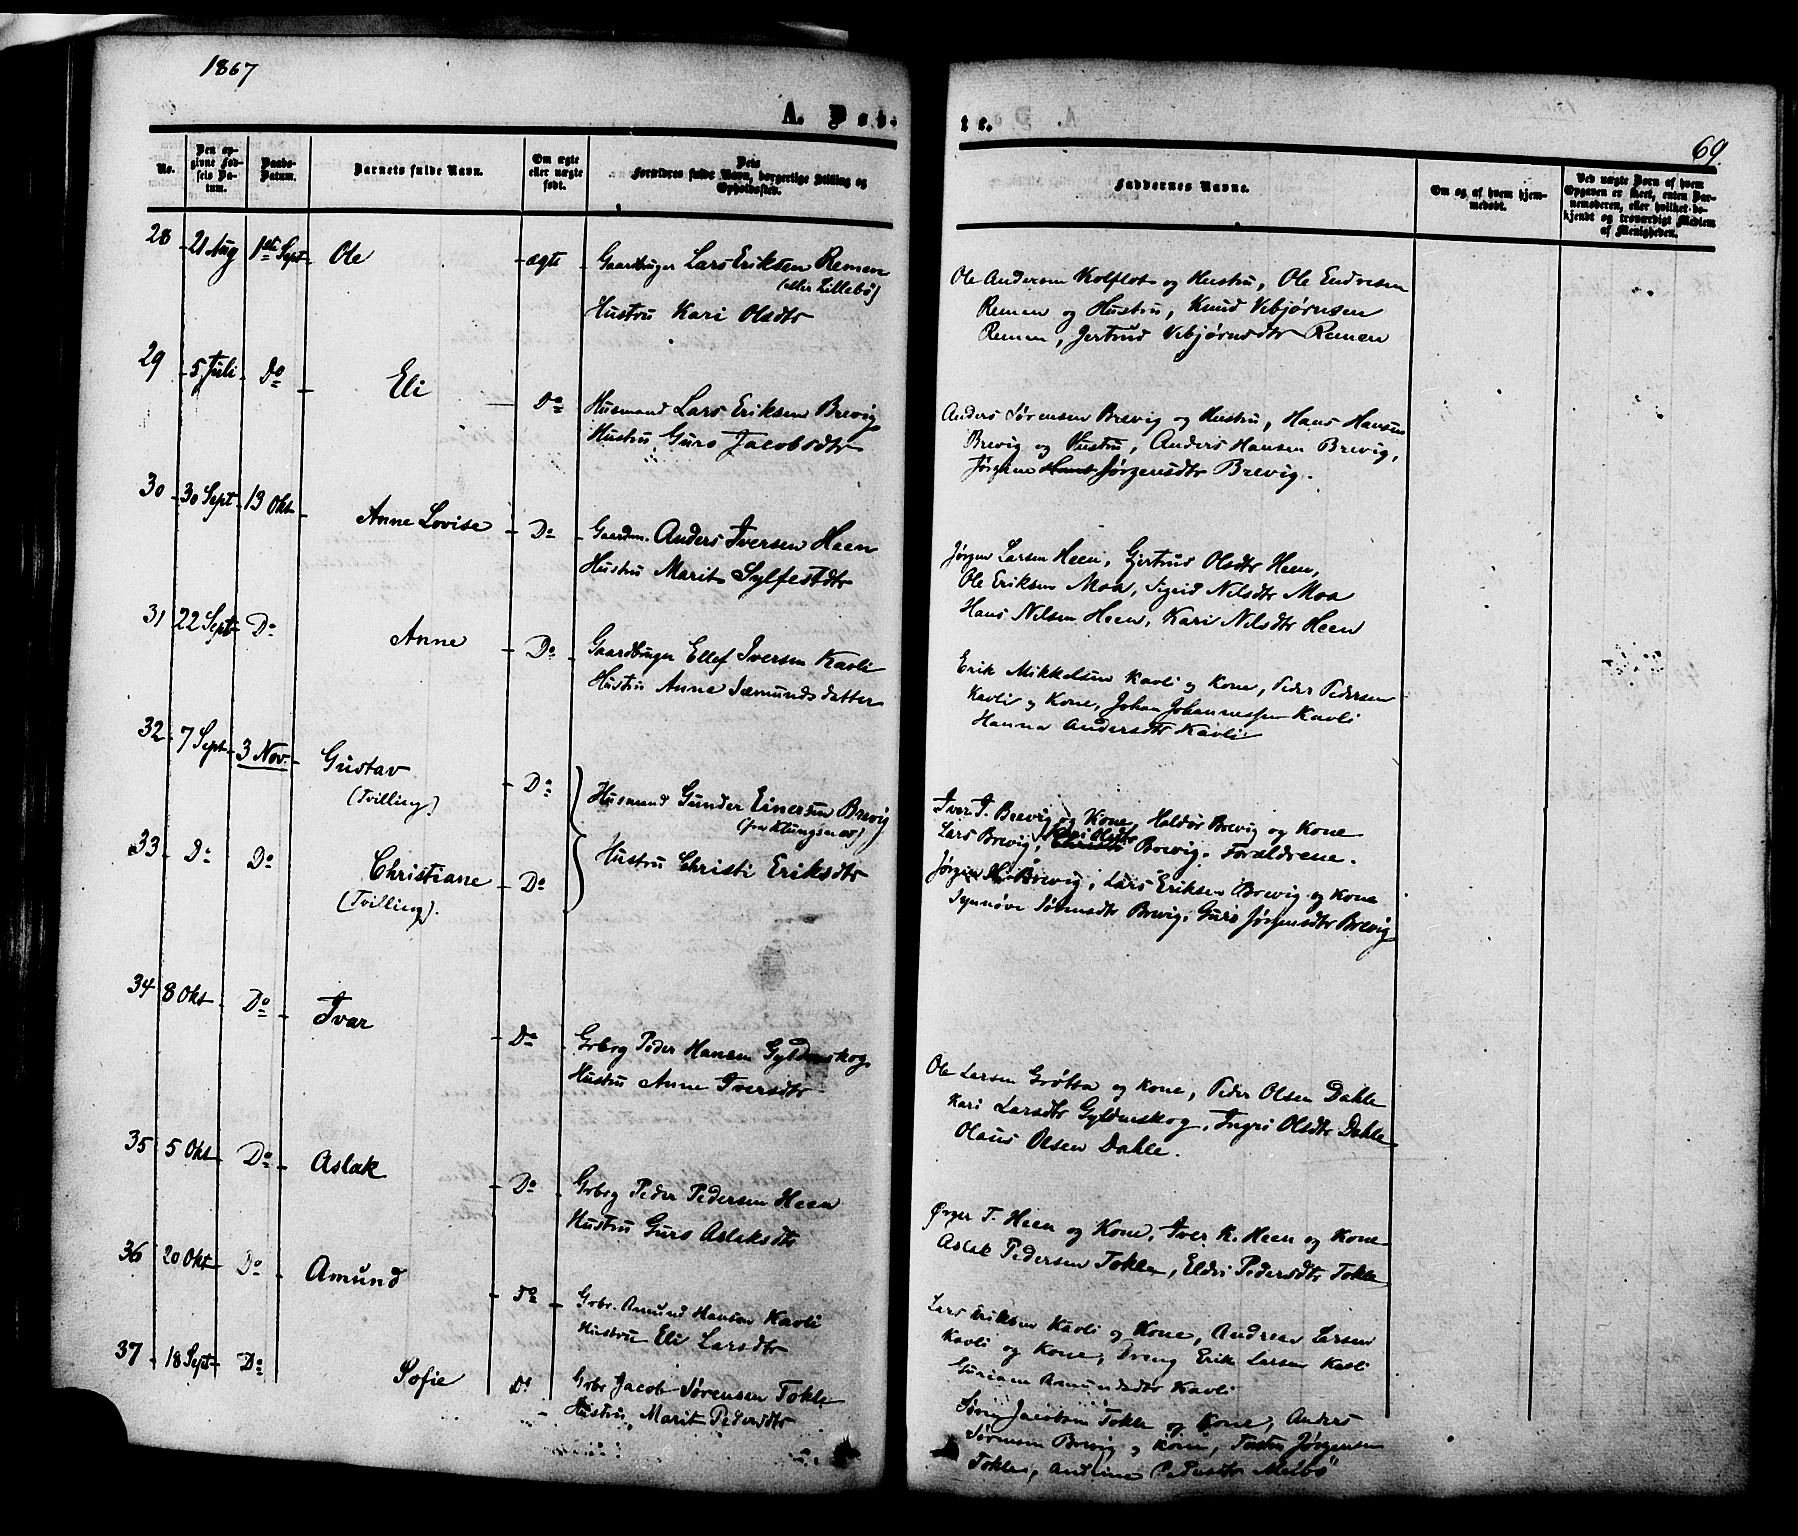 1867
A. Døb-
te.
69.
No.
Den op-
givne Fød-
sels Da-
tum.
Daabs-
Datum.
Barnets fulde Navn.
Om ægte
eller uægte
født.
Dets
Forældres fulde Navn, borgerlige Stilling og
Opholdssted.
Faddernes Navne.
Om og af hvem hjem-
medøbt.
Ved uægte Børn af hvem
Opgaven er skeet, enten Bar-
nemoderen, eller hvilket be-
kjendt og troværdigt Medlem
af Menigheden.
28 21 Aug 1ste Sept Ole ægte Gaardbruger Lars Eriksen Remen
(eller Lillebø)
Hustru Kari Olsdtr
Ole Andersen Kolflot og Hustru, Ole Endresen
Remen og Hustru, Knud Vebjørnsen
Remen, Jertrud Vebjørnsdtr Remen
29 5 Juli Do Eli Do Husmand Lars Eriksen Brevig
Hustru Guro Jacobsdtr
Anders Sørensen Brevig og Hustru, Hans Hansen
Brevig og Hustru, Anders Hansen Brevig,
Jørgine Jørgensdtr Brevig.
30 30 Sept 13 Okt Anne Lovise Do Gaardm. Anders Iversen Heen
Hustru Marit Sylfestdtr
Jørgen Larsen Heen, Gjertrud Olsdtr Heen,
Ole Eriksen Moa, Sigrid Nilsdtr Moa
Hans Nilsen Heen, Kari Nilsdtr Heen
31 22 Sept Do Anne Do Gaardbruger Ellef Iversen Kavli
Hustru Anne Sæmundsdatter
Erik Mikkelsen Kavli og Kone, Peder Pedersen
Kavli og Kone, Johan Johannessen Kavli
Hanna Andersdtr Kavli
32 7 Sept 3 Nov. Gustav Do
(Tvilling)
Husmand Gunder Einersen Brevig
(fra Klungsnæs)
Hustru Christi Eriksdtr
Iver I. Brevig og Kone, Haldor Brevig og Kone
Lars Brevig, Kari Olsdtr Brevig. Forældrene.
33 Do Do Christiane Do
(Tvilling).
Jørgen Brevig, Lars Eriksen Brevig og Kone
Synnøve Sørensdtr Brevig, Guro Jørgensdtr Brevig
34 8 Okt Do Ivar Do Grbrg Peder Hansen Gyldenskog
Hustru Anne Iversdtr
Ole Larsen Grøtta og Kone, Peder Olsen Dahle
Kari Larsdtr Gyldenskog, Ingri Olsdtr Dahle
Olaus Olsen Dahle.
35 5 Okt Do Aslak Do Grbrg Peder Pedersen Heen
Hustru Guro Aslaksdtr
Ørger T. Heen og Kone, Iver K. Heen og Kone
Aslak Pedersen Tokle, Eldri Pedersdtr Tokle
36 20 Okt Do Amund Do Grbr. Amund Hansen Kavli
Hustru Eli Larsdtr
Lars Eriksen Kavli og Kone, Andreas Larsen
Kavli og Kone, Dreng Erik Larsen Kavli
Amundsdtr Kavli
37 18 Sept Do Sofie Do Grbr Jacob Sørensen Tokle
Hustru Marit Pedersdtr
Søren Jacobsen Tokle og Kone, Anders
Sørensen Brevig og Kone, Jørgensen
Tokle, Pedersdtr Melbø